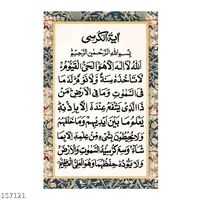 آیة الکرسی
بِسْمِ اللهِ الرَّحْمٰنِ الرَّحِيْمِ
اَللهُ لَا اِلٰهَ اِلَّا هُوَ اَلْحَىُّ الْقَيُّوْمُ
لَا تَاْخُذُهٗ سِنَةٌ وَّلَا نَوْمٌ لَهٗ مَا
فِى السَّمٰوٰتِ وَمَا فِى الْاَرْضِ مَنْ
ذَا الَّذِىْ يَشْفَعُ عِنْدَهٗ اِلَّا بِاِذْنِهٖ
يَعْلَمُ مَا بَيْنَ اَيْدِيْهِمْ وَمَا خَلْفَهُمْ
وَلَا يُحِيْطُوْنَ بِشَىْءٍ مِّنْ عِلْمِهٖ اِلَّا بِمَا
شَآءَ وَسِعَ كُرْسِيُّهُ السَّمٰوٰتِ وَالْاَرْضَ
وَلَا يَئُوْدُهٗ حِفْظُهُمَا وَهُوَ الْعَلِىُّ الْعَظِيْمُ
157121